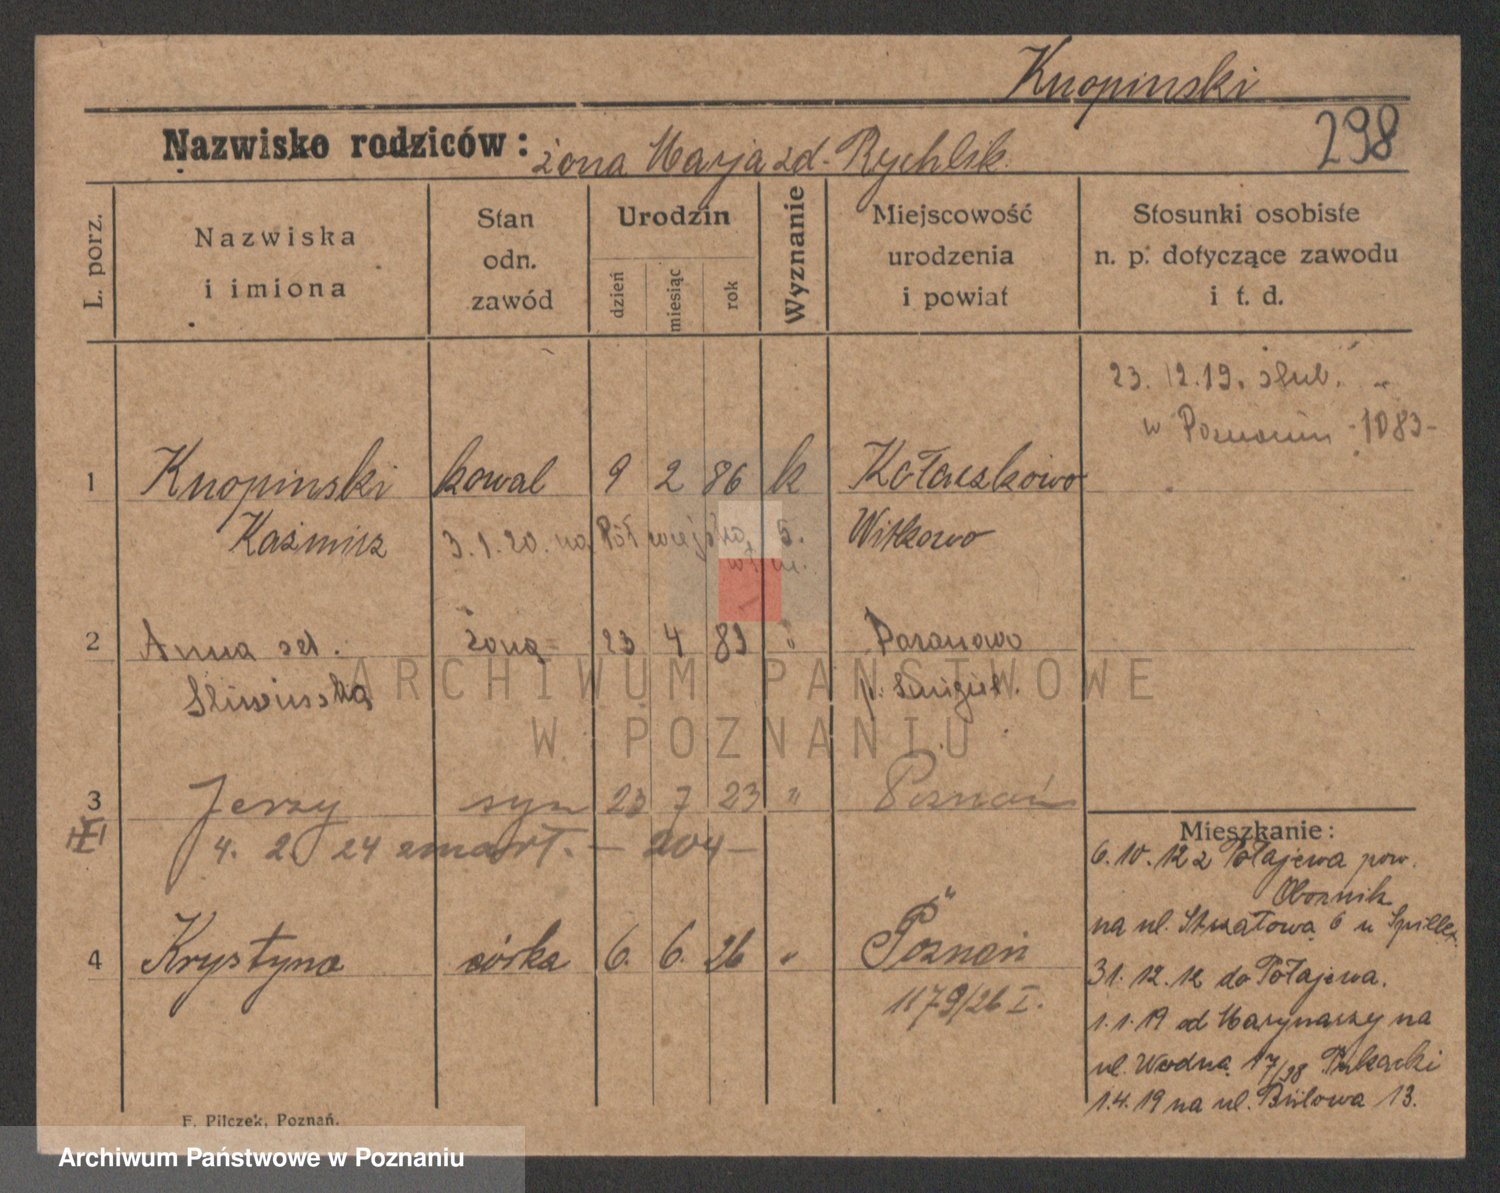 Knopinski
298
Nazwisko rodziców: żona Marja zd. Rychlik
L. porz.
Nazwiska
i imiona
Stan
odn.
zawód
Urodzin
dzień
miesiąc
rok
Wyznanie
Miejscowość
urodzenia
i powiat
Stosunki osobiste
n. p. dotyczące zawodu
i t. d.
23. 12. 19. ślub.
w Poznaniu -1083-
1 Knopinski kowal 9 2 86 k Kołaczkowo
Kaźmirz 3.1.20. na Półwiejską 5. Witkowo
2 Anna zd. żona 23 4 89 "
Śliwinska p. Śmigiel.
3 Jerzy syn 23 7 23 " Poznań
4. 2. 24 zmarł. - 204 -
4 Krystyna córka 6. 6. 26 " Poznań
1179/26 I.
Mieszkanie:
6.10.12 z Połajewa pow.
Obornik
na ul. Strzałowa 6 u
31.12.12 do Połajewa.
1.1.19 od Marynarzy na
ul. Wodna 17/18
1.4.19 na ul. Bülowa 13.
F. Pilczek, Poznań.
ARCHIWUM PAŃSTWOWE
W POZNANIU
Archiwum Państwowe w Poznaniu